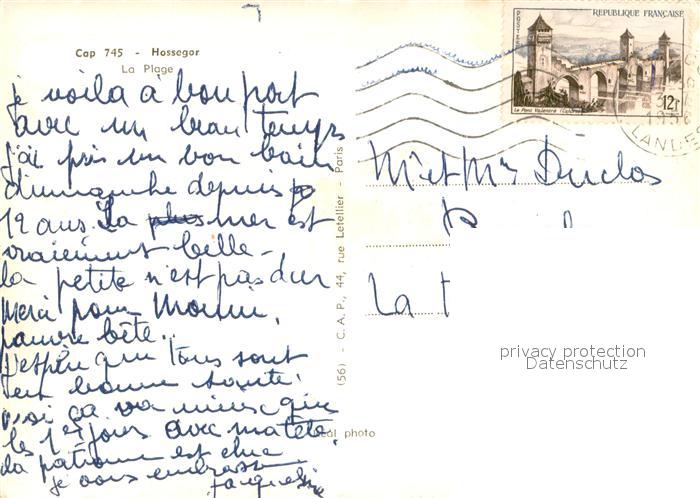 Cap 745 - Hossegor
La Plage
je voila à bon port
avec un beau temps
j'ai pris un bon bain
dimanche depuis
12 ans. La plus mer est
vraiement belle -
la petite n'est pas dur
merci pour
pauvre bête..
J'espère que tous sont
en bonne santé.
moi ça va mieux que
les 1er jours avec ma tête.
la patronne est chic
je vous embrasse
Jacqueline
(56) - C. A. P., 44, rue Letellier - Paris
Réal photo
REPUBLIQUE FRANÇAISE
POSTES
12F
Le Pont Valentré (Cahors)
1956
LANDES
Mr et Mme Duclos
La
privacy protection
Datenschutz